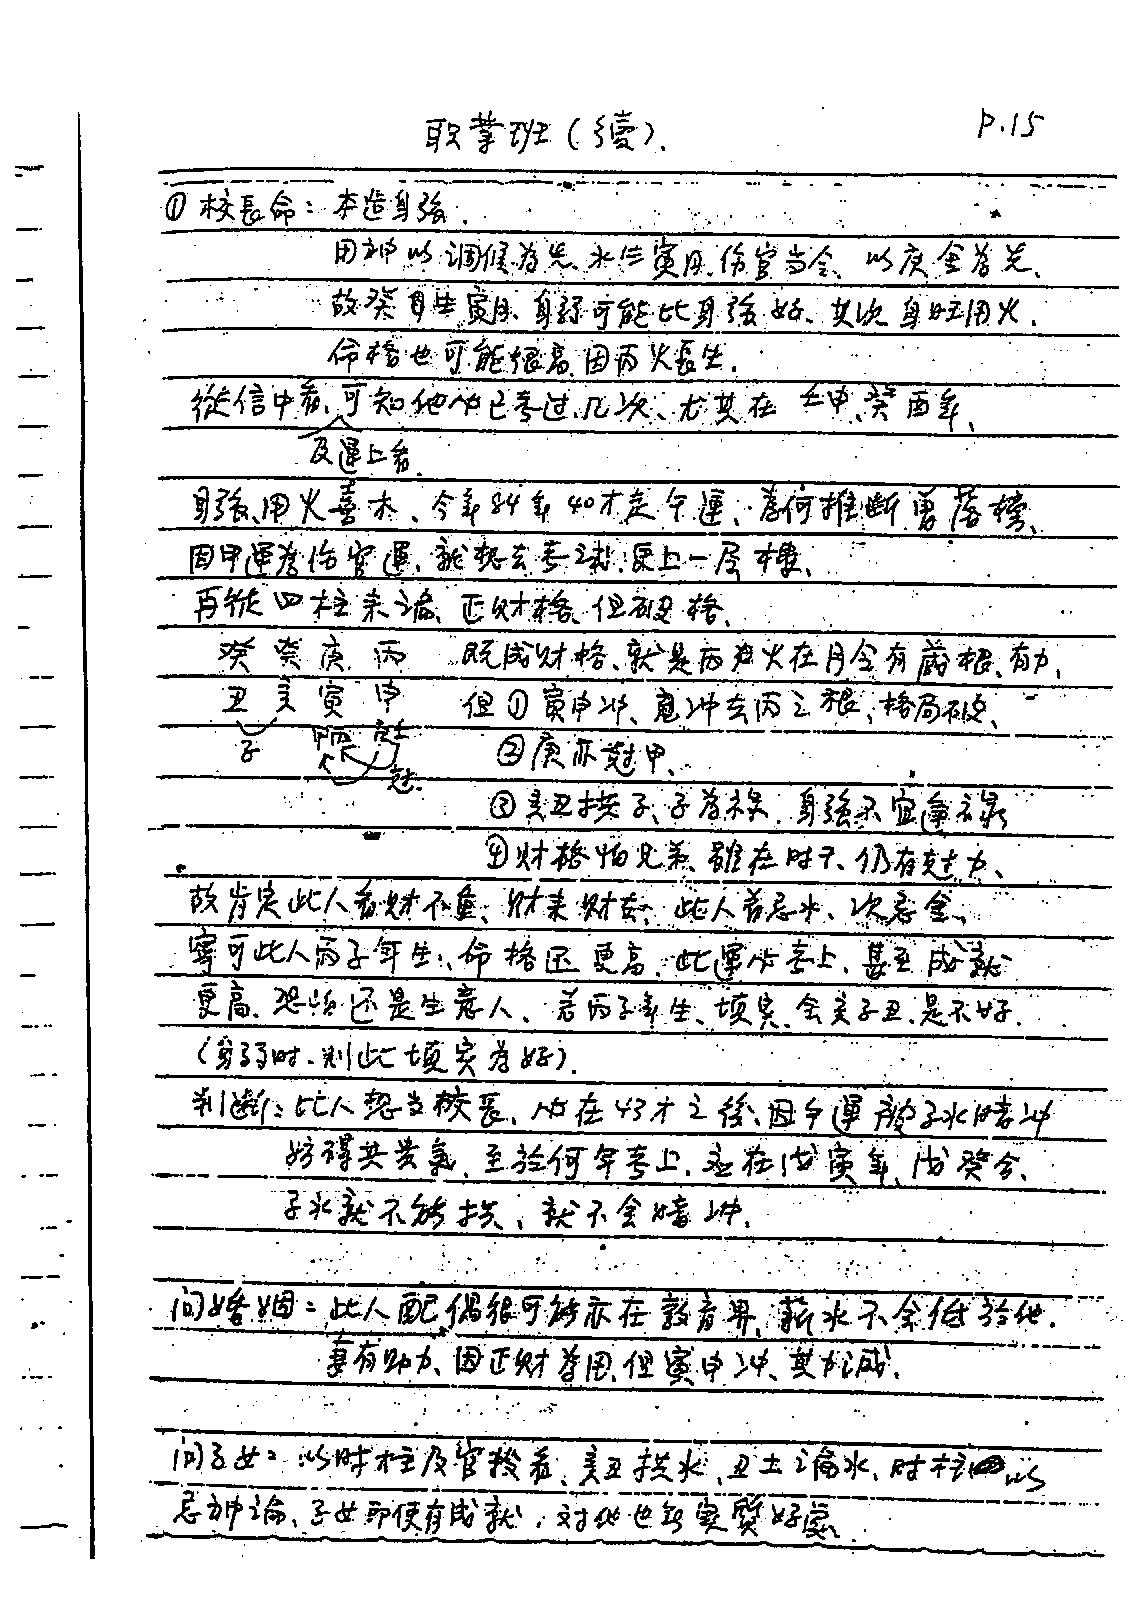 职業班(續).
P.15
① 校長命：本造身強.
用神以调候為先,水生寅月,伤官当令、以庚金為先、
故癸日生寅月,身弱可能比身強好、其次身旺用火.
命格也可能很高,因丙火長生.
從信中看、可知他必已考过几次、尤其在 壬申、癸酉年、
及運上看.
身強、用火喜木、今年84年40才走午運、為何推斷曾落榜、
因甲運為伤官運,就想去考试,更上一层樓、
再從四柱來論、正财格、但破格、
癸 癸 庚 丙 既成财格、就是丙火在月令有藏根、有力,
丑 亥 寅 申 但①寅申冲,冲去丙之根、格局破、
子 尅
尅
②庚亦尅甲、
③亥丑拱子、子為禄,身強不宜逢禄
④财格怕兄弟,雖在时干、仍有尅力、
故肯定此人看财不重、财来财去、此人首忌水、次忌金、
寧可此人丙子年生,命格还更高,此運必考上、甚至成就
更高、恐怕还是生意人、若丙子年生、填实,会亥子丑,是不好.
(身弱时、則此填实為好).
判断：此人想当校長、必在43才之後、因午運被子水暗冲
好得其貴氣,至於何年考上,应在戊寅年、戊癸合、
子水就不能拱、就不会暗冲.
问婚姻：此人配偶很可能亦在教育界,薪水不会低於他.
妻有助力、因正财為用,但寅申冲、其力减.
问子女：以时柱及官殺看、亥丑拱水、丑土濕水,时柱以
忌神論、子女即使有成就,对他也无实質好處.